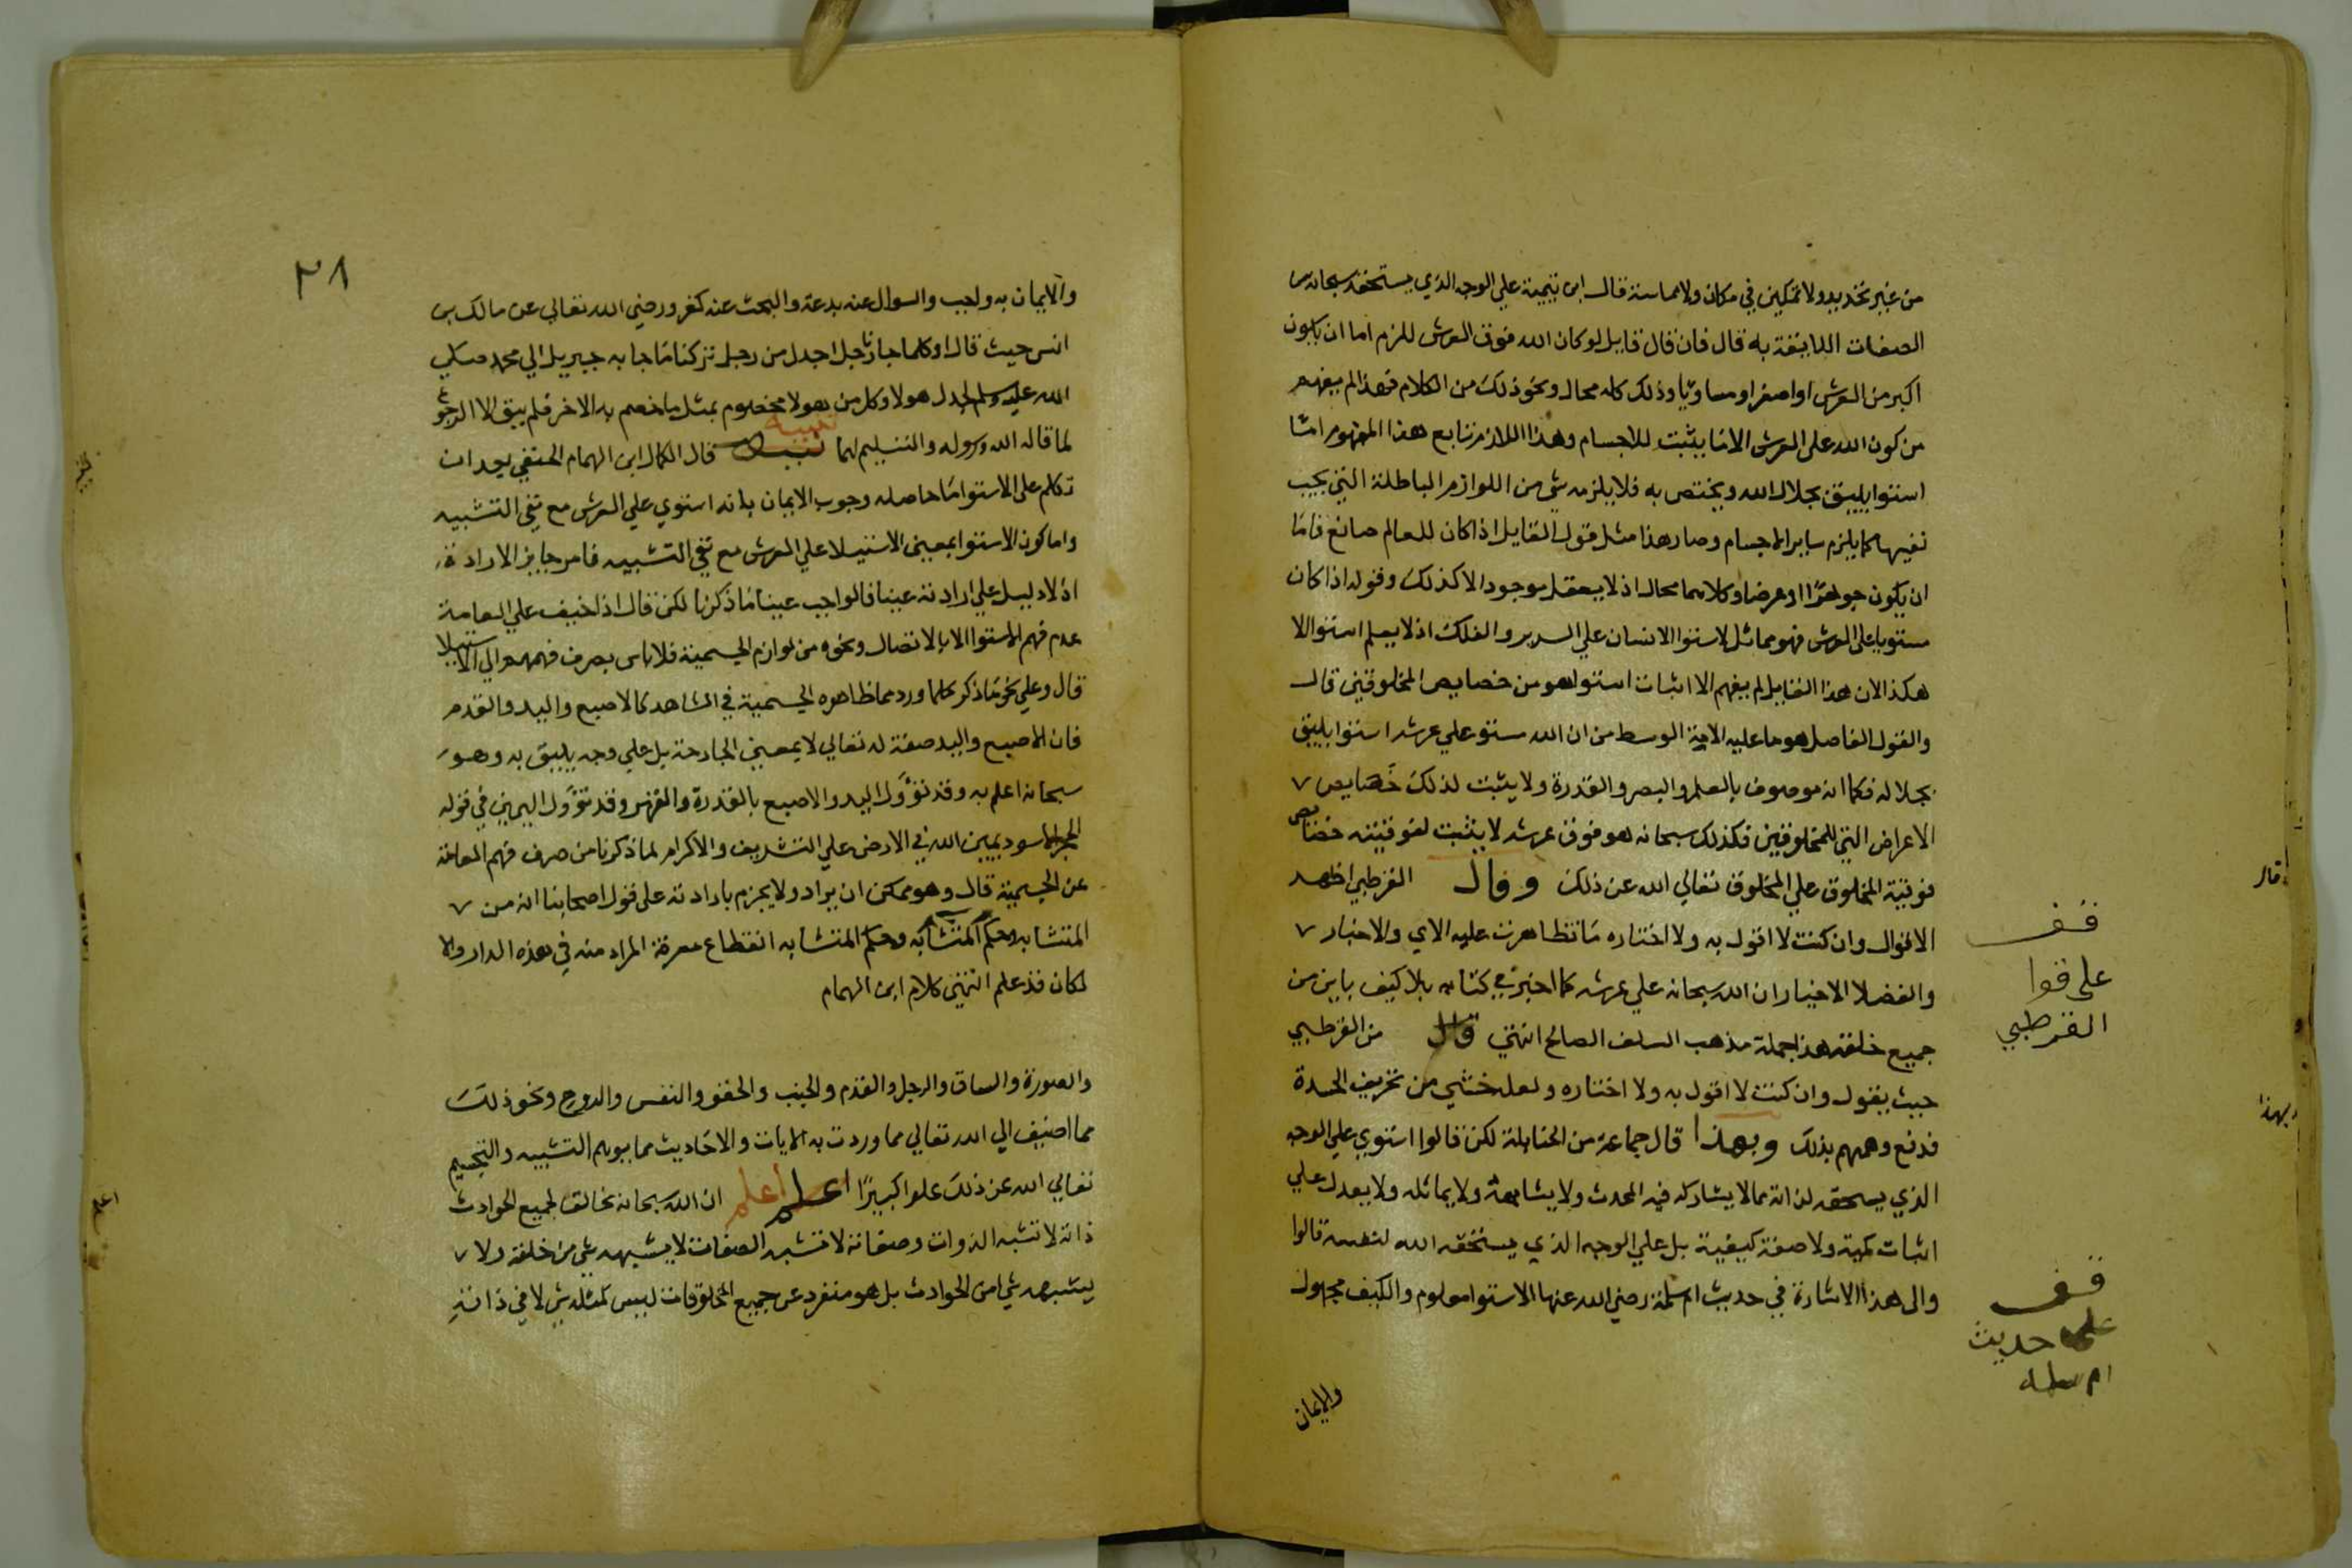 من غير تحديد ولا تمكين في مكان ولا مماسة قال ابن تيمية علي الوجه الذي يستحقه سبحانه من
الصفات اللايقة به قال فان قال قايل لو كان الله فوق العرش للزم اما ان يكون
اكبر من العرش او اصغر او مساويا وذلك كله محال ونحو ذلك من الكلام فهذا لم يفهم
من كون الله على العرش الا ما يثبت للاجسام وهذا اللازم تابع هذا المفهوم اما
استوا يليق بجلال الله ويختص به فلا يلزمه شي من اللوازم الباطلة التي يجب
نفيها كما يلزم ساير الاجسام وصار هذا مثل قول القايل اذا كان للعالم صانع فاما
ان يكون جوهرًا او عرضا وكلاهما محال اذ لا يعقل موجود الا كذلك وقوله اذا كان
مستويا على العرش فهو مماثل لاستوا الانسان علي السرير والفلك اذ لا يعلم استوا الا
هكذا لان هذا القايل لم يفهم الا اثبات استوا هو من خصايص المخلوقين قال
والقول الفاصل هو ما عليه الامة الوسط من ان الله مستو علي عرشه استوا يليق
بجلاله فكما انه موصوف بالعلم والبصر والقدرة ولا يثبت لذلك خصايص
الاعراض التي للمخلوقين فكذلك سبحانه هو فوق عرشه لا يثبت لفوقيته خصايص
فوقية المخلوق علي المخلوق تعالي الله عن ذلك وقال القرطبي اظهر
الاقوال وان كنت لا اقول به ولا اختاره ما تظاهرت عليه الاي والاخبار
والفضلا الاخيار ان الله سبحانه علي عرشه كما اخبر في كتابه بلا كيف باين من
جميع خلقه هذا جملة مذهب السلف الصالح انتهي قال من القرطبي
حيث يقول وان كنت لا اقول به ولا اختاره ولعله خشي من تحريف الحسدة
فدفع وهمهم بذلك وبهذا قال جماعة من الحنابلة لكن قالوا استوي علي الوجه
الذي يستحقه لذاته مما لا يشاركه فيه المحدث ولا يشابهه ولا يماثله ولا يعدل علي
اثبات كمية ولا صفة كيفية بل علي الوجه الذي يستحقه الله لنفسه قالوا
والى هذا الاشارة في حديث ام سلمة رضي الله عنها الاستوا معلوم والكيف مجهول
والايمان
قف
على قوا
القرطبي
قف
على حديث
ام سلمه
قال
وبهذا
٣٨
والايمان به واجب والسوال عنه بدعة والبحث عنه كفر ورضي الله تعالي عن مالك بن
انس حيث قال او كلما جا رجل اجدل من رجل تركنا ما جا به جبريل الي محمد صلي
الله عليه وسلم لجدل هولا وكل من هولا مخصوم بمثل ما خصم به الاخر فلم يبق الا الرجوع
لما قاله الله ورسوله والتسليم لهما تنبيه قال الكمال ابن الهمام الحنفي بعد ان
تكلم على الاستوا ما حاصله وجوب الايمان بانه استوي علي العرش مع نفي التشبيه
واما كون الاستوا بمعني الاستيلا علي العرش مع نفي التشبيه فامر جايز الارادة
اذ لا دليل علي ارادته عينا فالواجب عينا ما ذكرنا لكن قال اذا خيف علي العامة
عدم فهم الاستوا الا بالاتصال ونحوه من لوازم الجسمية فلا باس بصرف فهمهم الي الاستيلا
قال وعلي نحو ما ذكر كلما ورد مما ظاهره الجسمية في الشاهد كالاصبع واليد والقدم
فان الاصبع واليد صفة له تعالي لا بمعني الجارحة بل علي وجه يليق به وهو
سبحانه اعلم به وقد تؤول اليد والاصبع بالقدرة والقهر وقد تؤول اليمين في قوله
الحجر الاسود يمين الله في الارض علي التشريف والاكرام لما ذكرنا من صرف فهم العامة
عن الجسمية قال وهو ممكن ان يراد ولا يجزم بارادته على قول اصحابنا انه من
المتشابه وحكم المتشابه وحكم المتشابه انقطاع معرفة المراد منه في هذه الدار والا
لكان قد علم انتهي كلام ابن الهمام
والصورة والساق والرجل والقدم والجنب والحقو والنفس والروح ونحو ذلك
مما اضيف الي الله تعالي مما وردت به الايات والاحاديث مما يوهم التشبيه والتجسيم
تعالي الله عن ذلك علوا كبيرًا اعلم اعلم ان الله سبحانه مخالف لجميع الحوادث
ذاته لا تشبه الذوات وصفاته لا تشبه الصفات لا يشبهه شي من خلقه ولا
يشبه شي من الحوادث بل هو منفرد عن جميع المخلوقات ليس كمثله شي لا في ذاته
اعلم